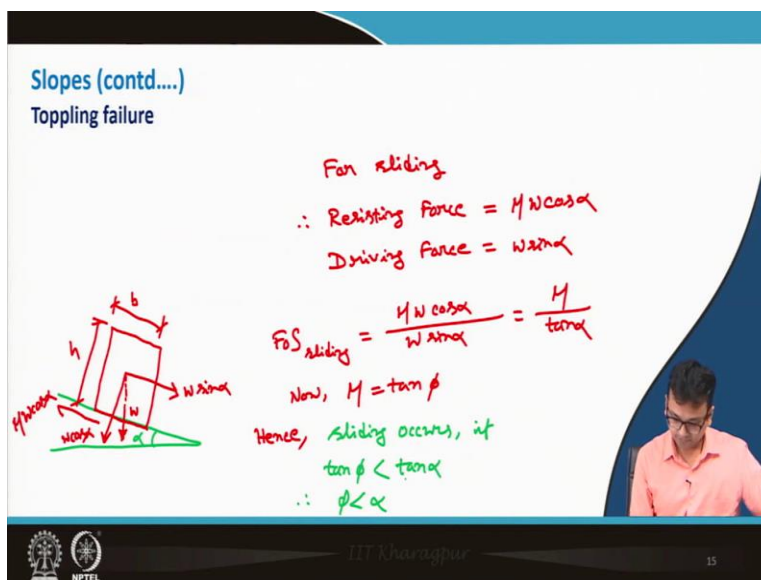 Slopes (contd....)
Toppling failure
For sliding
∴ Resisting Force = μ W cosα
Driving Force = W sinα
FoS sliding = μ W cosα / W sinα = μ / tanα
Now, μ = tan φ
Hence, sliding occurs, if
tan φ < tan α
∴ φ < α
b
h
W sinα
μ W cosα
W
W cosα
α
IIT Kharagpur
NPTEL
15